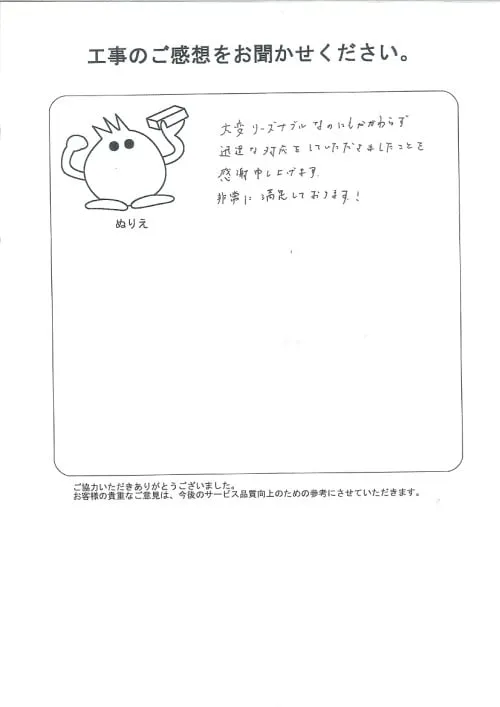 工事のご感想をお聞かせください。
大変リーズナブルなのにもかかわらず
迅速な対応をしていただきましたことを
感謝申し上げます。
非常に満足しております!
ぬりえ
ご協力いただきありがとうございました。
お客様の貴重なご意見は、今後のサービス品質向上のための参考にさせていただきます。